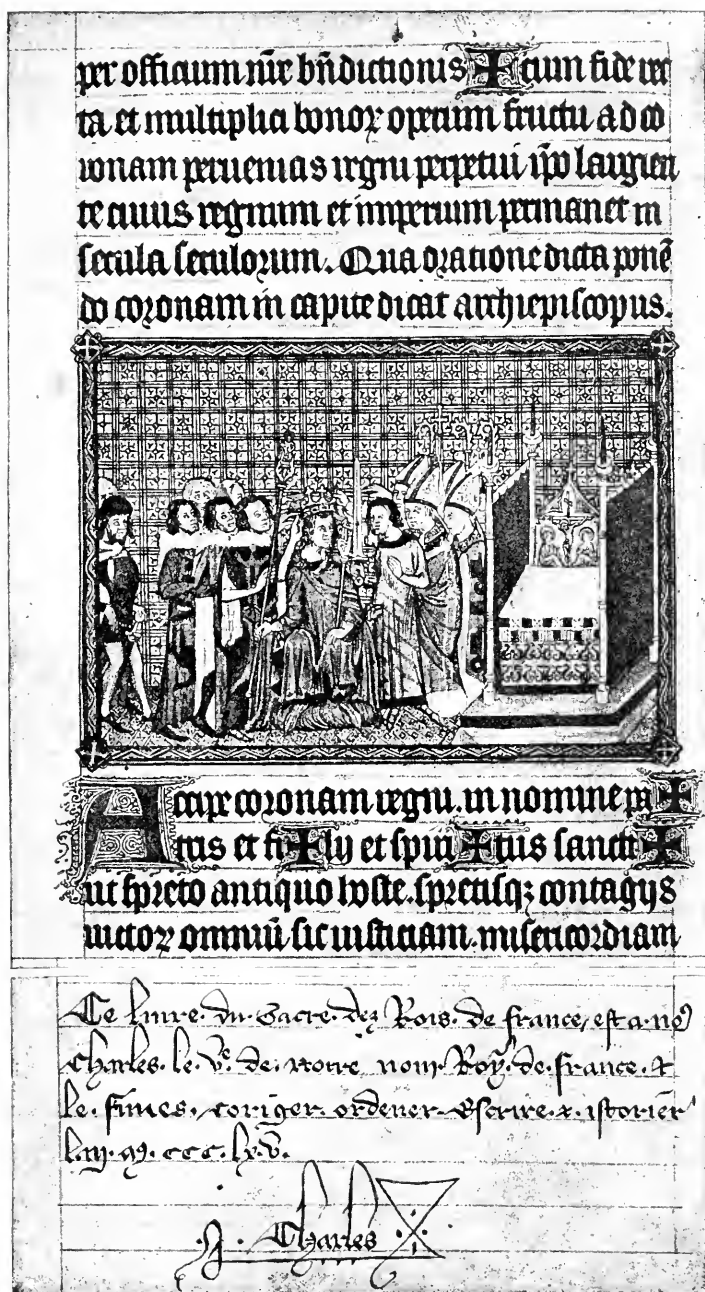 per officium nr̄e bn̄dictionis ✠ cum fide rec
ta et multiplici bonoꝝ operum fructu ad co
ronam peruenias regni perpetui ip̄o largien
te cuius regnum et imperium permanet in
secula seculorum. Qua oratione dicta ponē
do coronam in capite dicat archiepiscopus.
Accipe coronam regni. in nomine pa ✠
tris et fi ✠ lij et spiri ✠ tus sancti ✠
ut spreto antiquo hoste. spretisqꝫ contagijs
uictoꝝ omniū sic iusticiam. misericordiam
Ce liure du Sacre dez Rois de france, est a no9
Charles le .Ve. de notre nom Roy de france &
le fimes coriger ordener Escrire & istorier
l'an .M. ccc. lx.v.
Charles